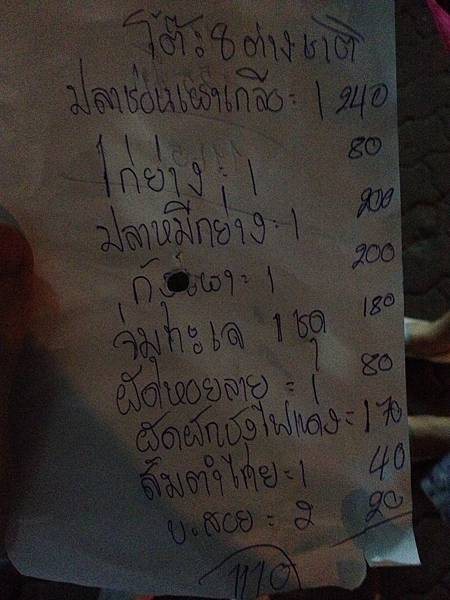 โต๊ะ 8 ต่างชาติ
ปลาช่อนเผาเกลือ = 1 240
ไก่ย่าง = 1 80
ปลาหมึกย่าง = 1 200
กุ้งเผา = 1 200
จุ่มทะเล 1 ชุด 180
ผัดหอยลาย = 1 80
ผัดผักบุ้งไฟแดง = 1 70
ส้มตำไทย = 1 40
ข.สวย = 2 20
1110